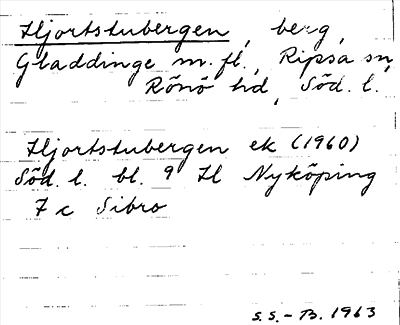 Hjortstubergen, berg,
Gladdinge m. fl., Ripsa sn,
Rönö hd, Söd. l.
Hjortstubergen ek (1960)
Söd. l. bl. 9 H Nyköping
7 c Sibro
S.S.-B. 1963